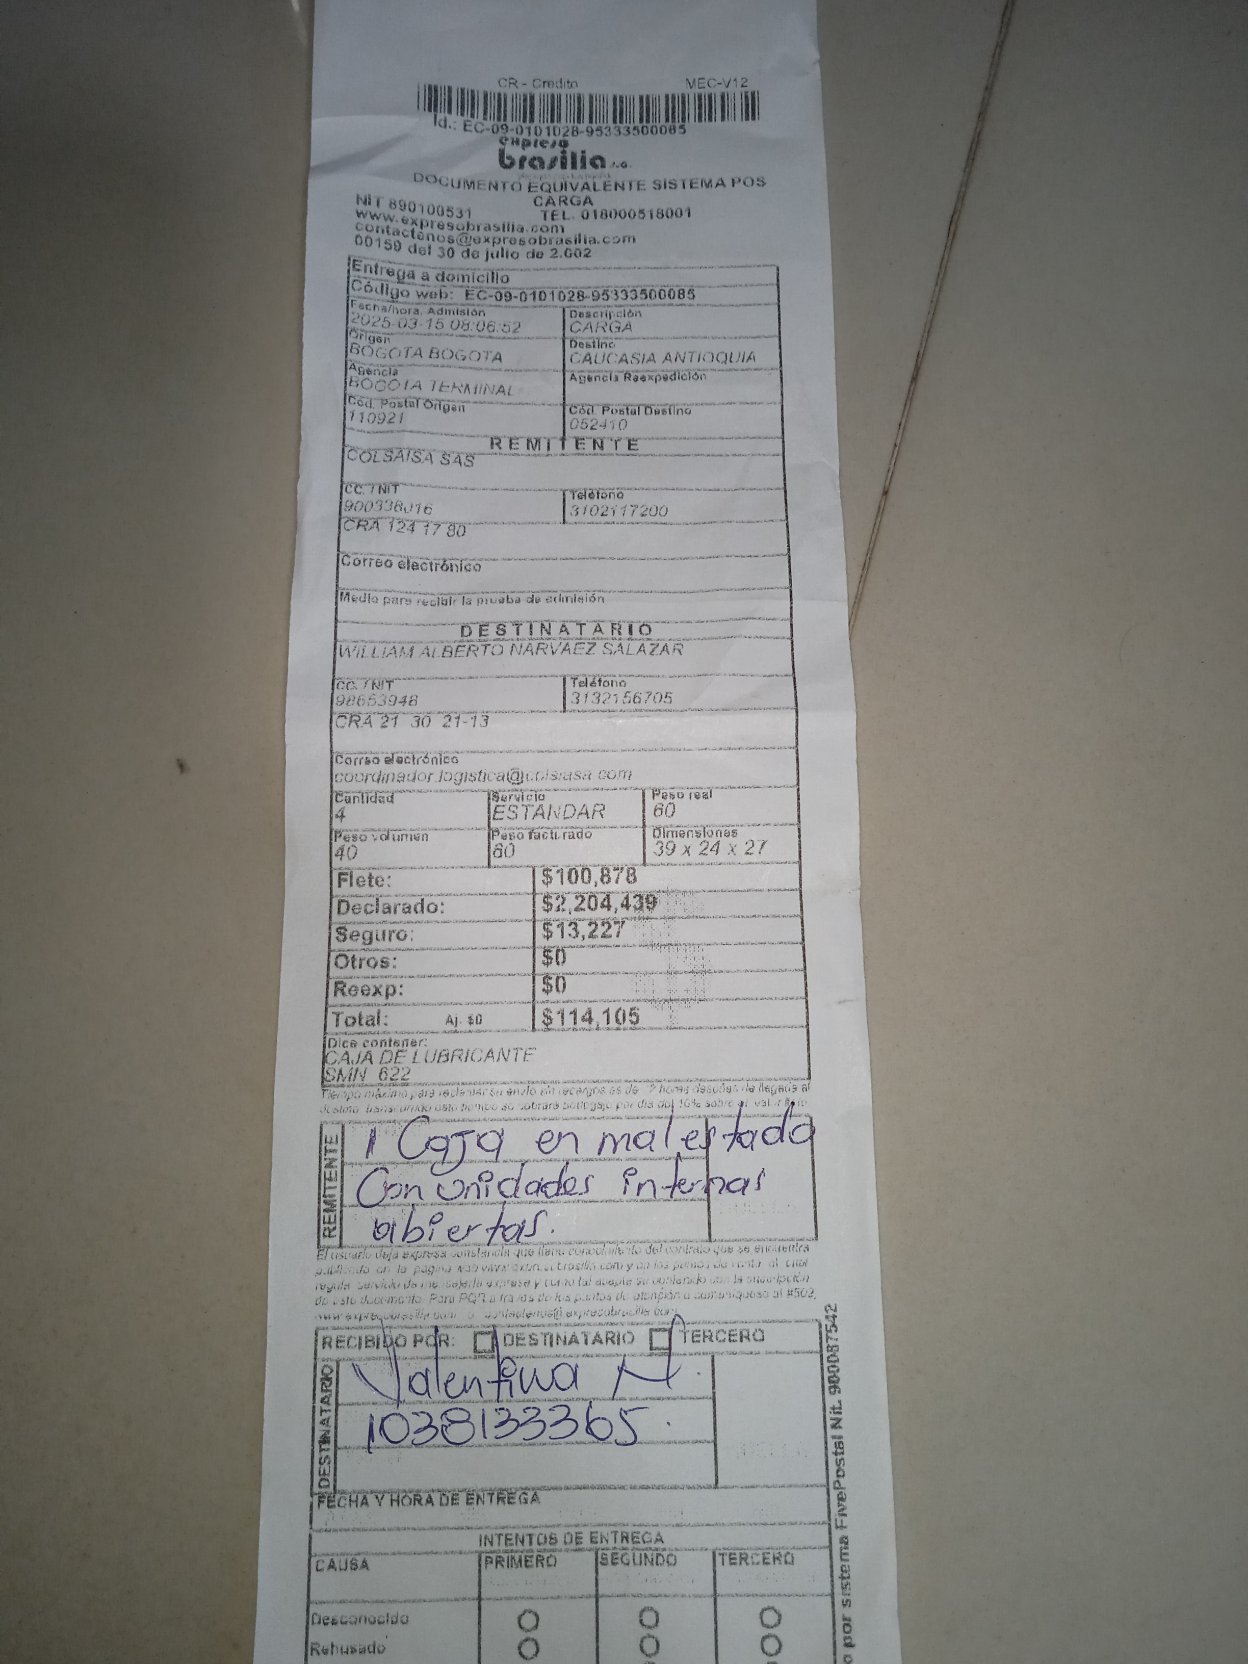 CR - Credito MEC-V12
Id.: EC-09-0101028-95333500085
expreso
brasilia S.A.
DOCUMENTO EQUIVALENTE SISTEMA POS
CARGA
NIT 890100531 TEL. 018000518001
www.expresobrasilia.com
contactenos@expresobrasilia.com
00159 del 30 de julio de 2.002
Entrega a domicilio
Código web: EC-09-0101028-95333500085
Fecha/hora. Admisión Descripción
2025-03-15 08:06:52 CARGA
Origen Destino
BOGOTA BOGOTA CAUCASIA ANTIOQUIA
Agencia Agencia Reexpedición
BOGOTA TERMINAL
Cód. Postal Origen Cód. Postal Destino
110921 052410
REMITENTE
COLSAISA SAS
CC. / NIT Teléfono
900338016 3102117200
CRA 124 17 80
Correo electrónico
Medio para recibir la prueba de admisión
DESTINATARIO
WILLIAM ALBERTO NARVAEZ SALAZAR
CC. / NIT Teléfono
98653948 3132156705
CRA 21 30 21-13
Correo electrónico
Cantidad Servicio Peso real
4 ESTANDAR 60
Peso volumen Peso facturado Dimensiones
40 60 39 x 24 x 27
Flete: $100,878
Declarado: $2,204,439
Seguro: $13,227
Otros: $0
Reexp: $0
Total: Aj. $0 $114,105
Dice contener:
CAJA DE LUBRICANTE
SMN 622
Tiempo máximo para reclamar su envío sin recargos es de horas después de llegada al
destino, transcurrido este tiempo se cobrará bodegaje por día del 10% sobre el valor
REMITENTE
1 Caja en mal estado
Con unidades internas
abiertas.
El usuario deja expresa constancia que tiene conocimiento del contrato que se encuentra
publicado en la página web www.expresobrasilia.com y en los puntos de venta, el cual
regula servicio de mensajería expresa y como tal acepta su contenido con la suscripción
de este documento. Para PQR a través de los puntos de atención o comuníquese al #502,
RECIBIDO POR: DESTINATARIO TERCERO
DESTINATARIO
Valentina N.
1038133365.
FECHA Y HORA DE ENTREGA
INTENTOS DE ENTREGA
CAUSA PRIMERO SEGUNDO TERCERO
Desconocido
Rehusado
o por sistema FivePostal Nit. 900087542